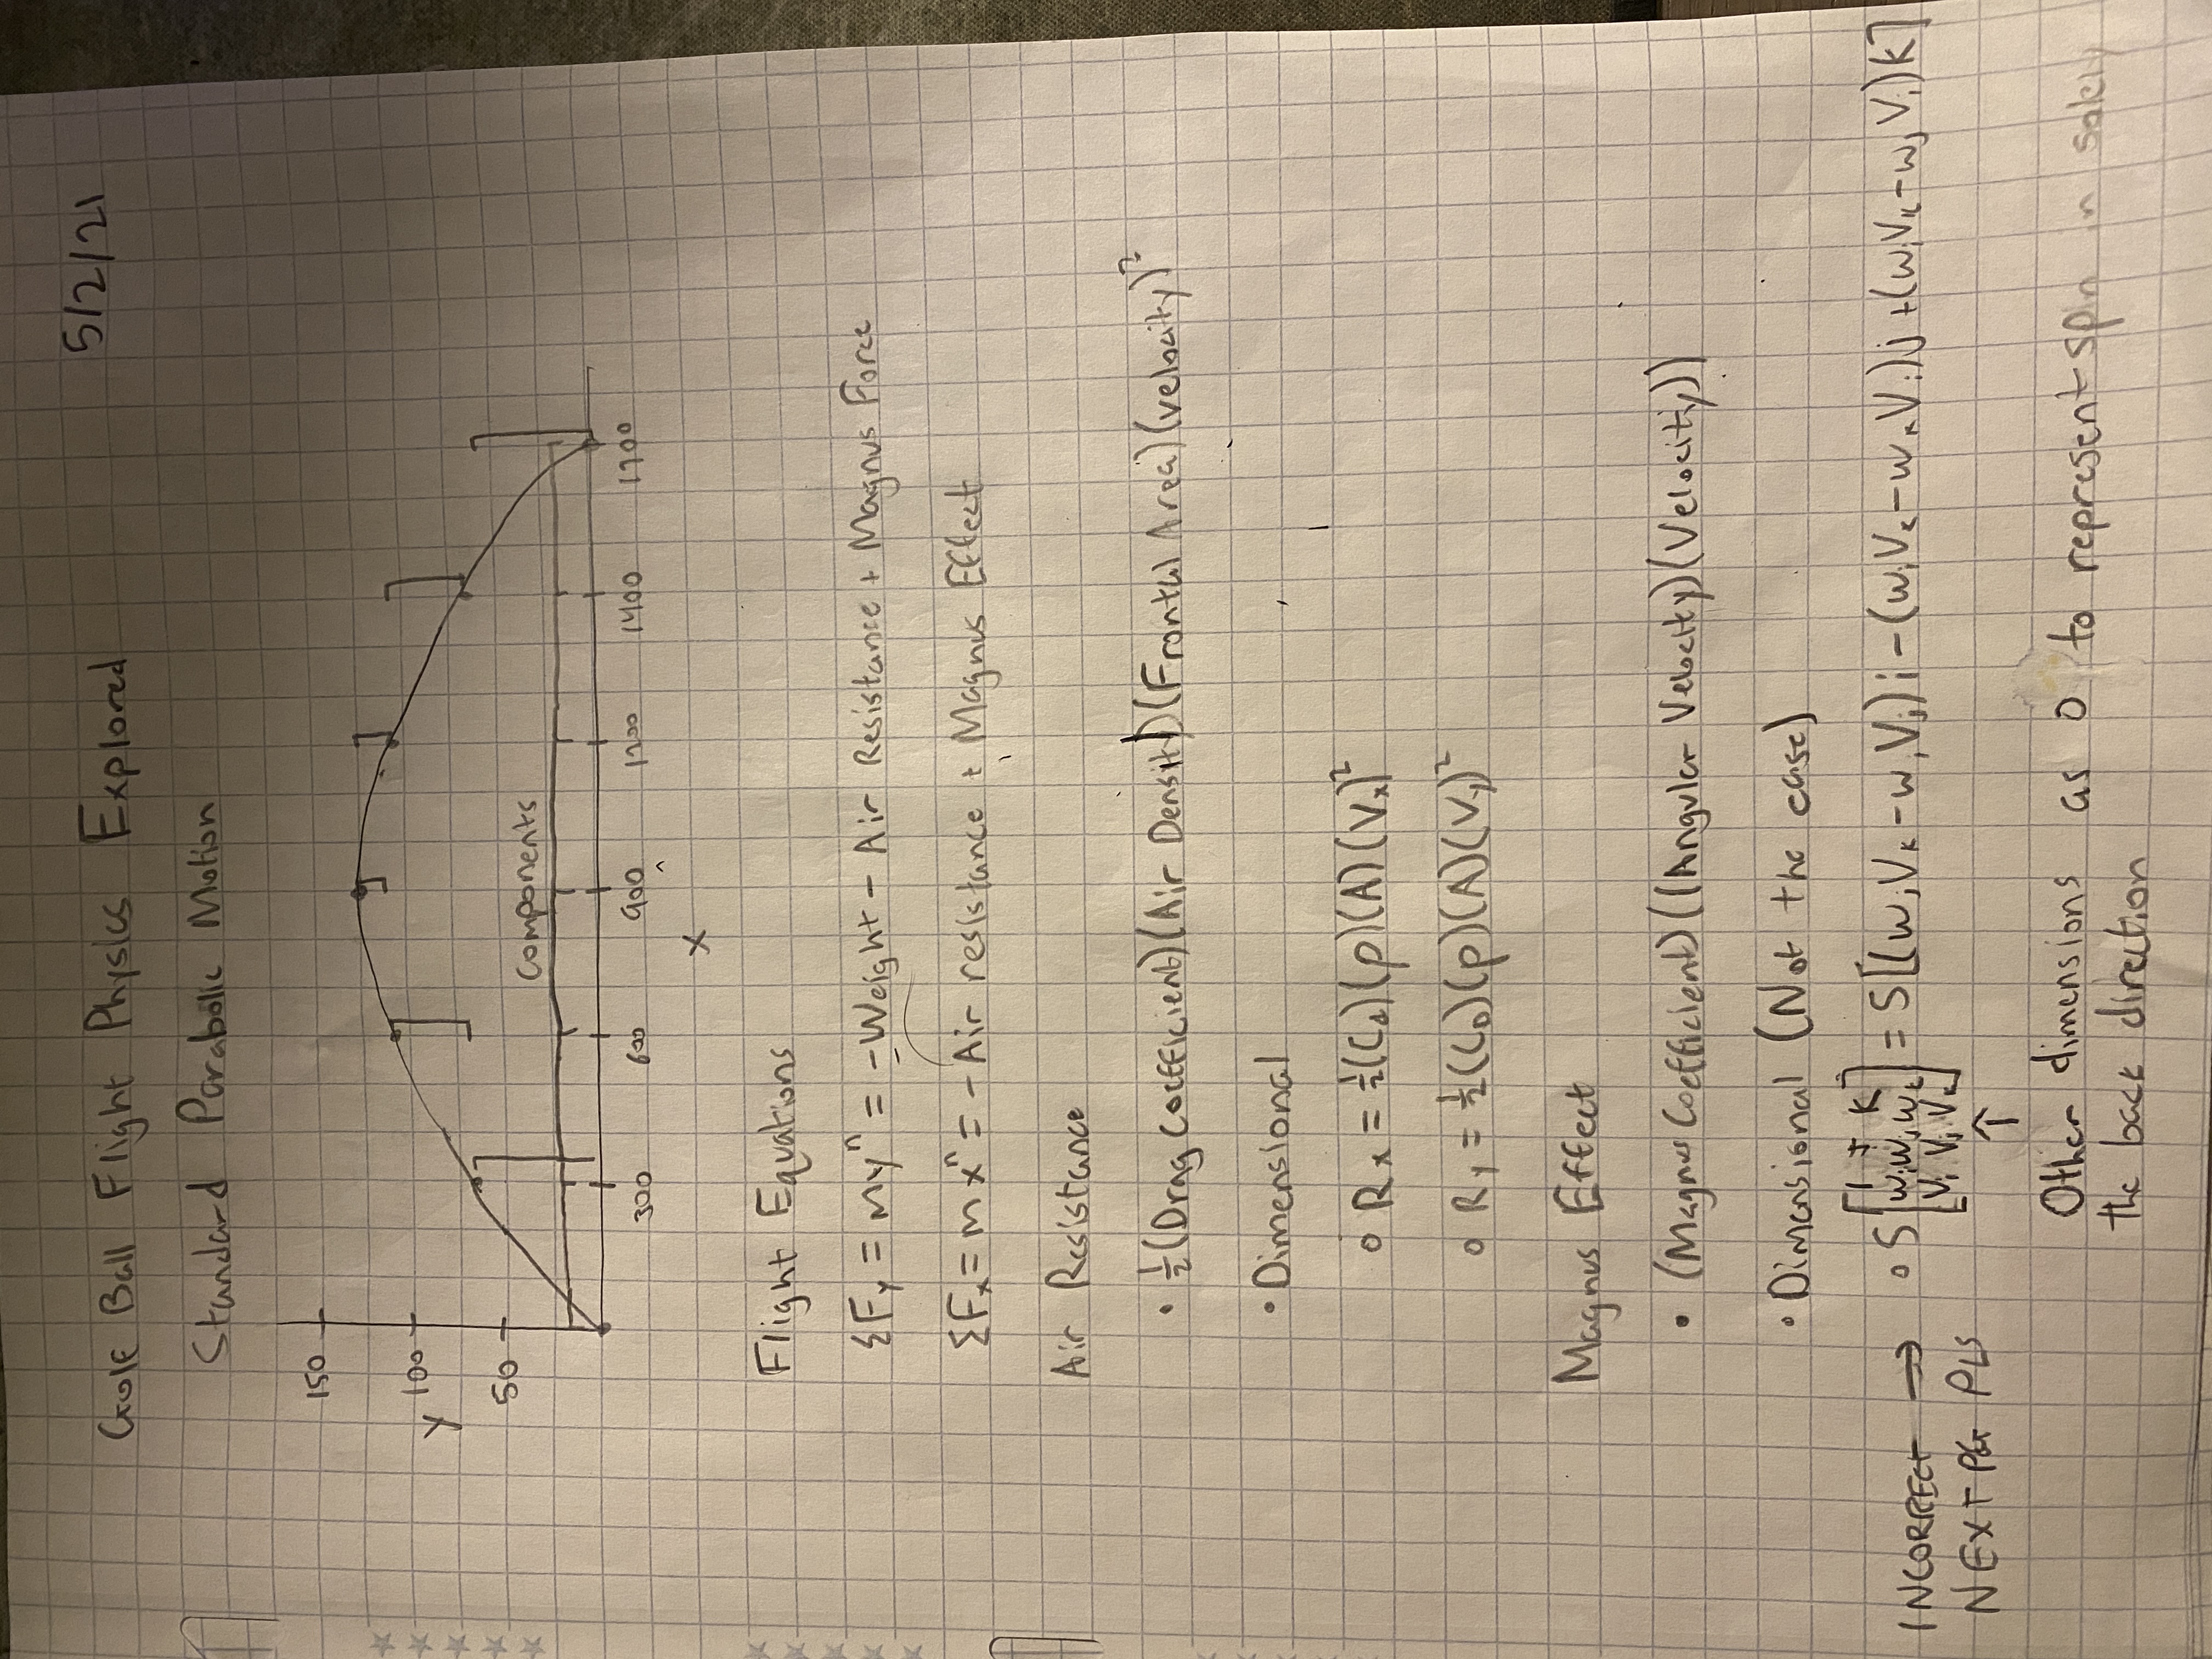 5/2/21
Golf Ball Flight Physics Explored
Standard Parabolic Motion
150
100
y
50
Components
300 600 900 1200 1400 1700
^
x
Flight Equations
ΣFy = my" = -Weight - Air Resistance + Magnus Force
ΣFx = mx" = -Air resistance + Magnus Effect
Air Resistance
• ½(Drag Coefficient)(Air Density)(Frontal Area)(velocity)²
• Dimensional
o Rx = ½(Cd)(ρ)(A)(Vx)²
o Ry = ½(CD)(ρ)(A)(Vy)²
Magnus Effect
• (Magnus Coefficient)((Angular Velocity)(Velocity))
• Dimensional (Not the case)
INCORRECT →
NEXT PG PLS
o S[i j k
wi wj wk
Vi Vj Vk] = S[(wjVk - wiVj)i - (wiVk - wkVi)j + (wiVk - wjVi)k]
↑
Other dimensions as 0 to represent spin in solely
the back direction